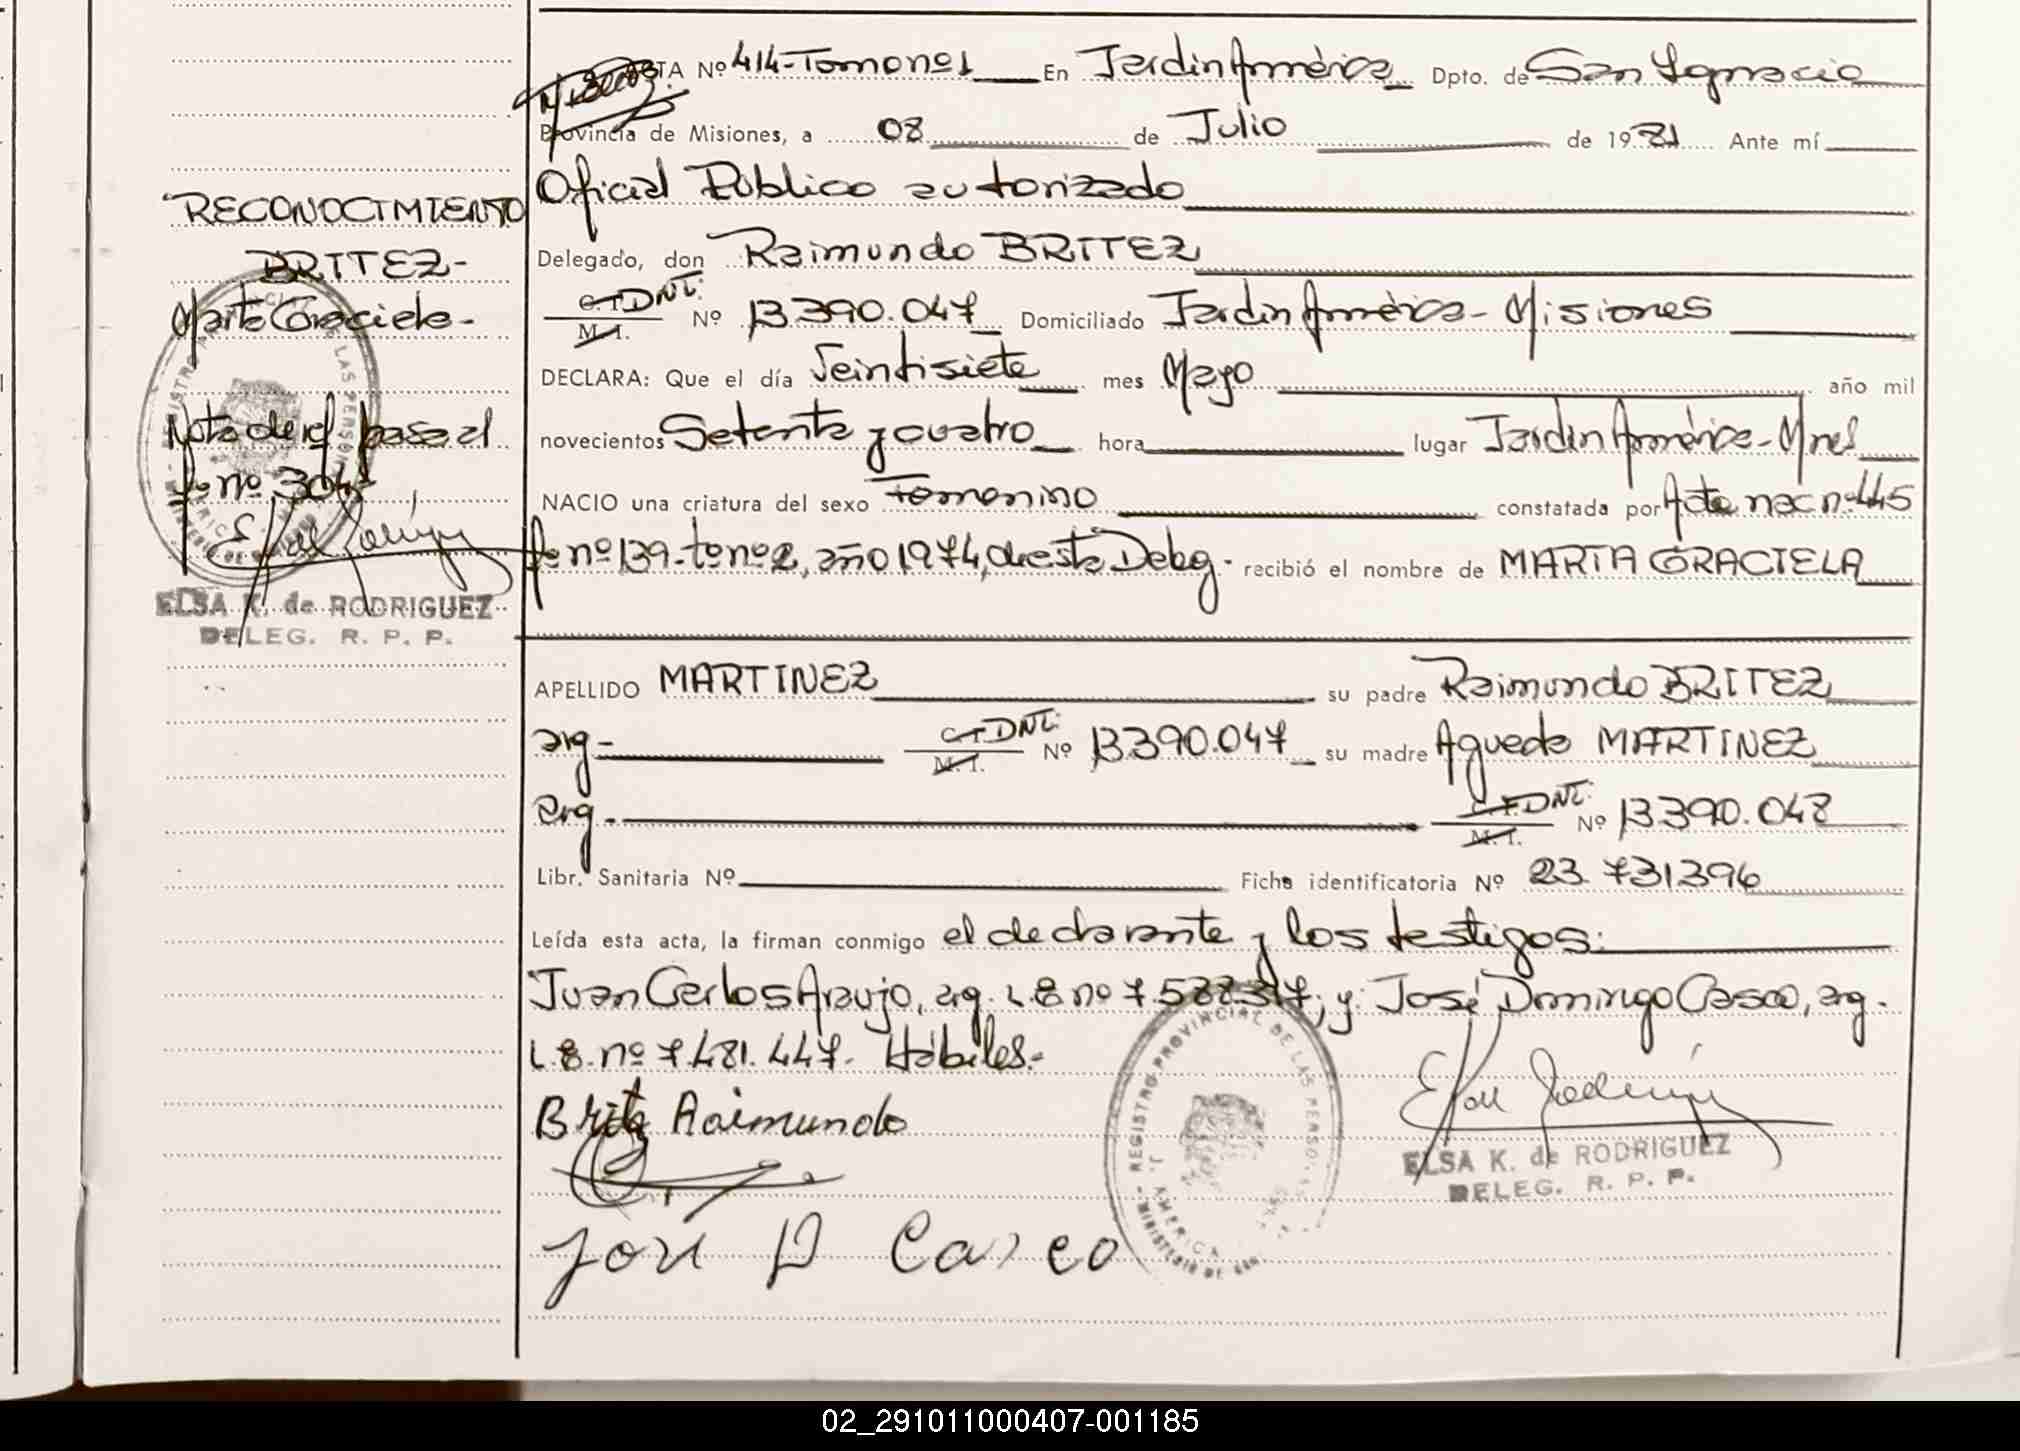 ACTA Nº 414-Tomo nº 1 En Jardin América Dpto. de San Ignacio
Provincia de Misiones, a 08 de Julio de 1981 Ante mí
Oficial Público autorizado
Delegado, don Raimundo BRITEZ
C.I. DNI: M.I. Nº 13.390.047 Domiciliado Jardin América - Misiones
DECLARA: Que el día Veintisiete mes Mayo año mil
novecientos Setenta y cuatro hora lugar Jardin América - Mnes
NACIO una criatura del sexo Femenino constatada por Acta nac nº 445
fº nº 139 - tº nº 2, año 1974, de esta Deleg - recibió el nombre de MARTA GRACIELA
APELLIDO MARTINEZ su padre Raimundo BRITEZ
arg - C.I. DNI: M.I. Nº 13.390.047 su madre Agueda MARTINEZ
arg - C.I. DNI: M.I. Nº 13.390.048
Libr. Sanitaria Nº Ficha identificatoria Nº 23.731396
Leída esta acta, la firman conmigo el declarante y los testigos:
Juan Carlos Araujo, arg. L.E. nº 7.588.317; y: José Domingo Casco, arg.
L.E. nº 7.481.447. Hábiles.-
Britez Raimundo
José D Casco
REGISTRO PROVINCIAL DE LAS PERSONAS
ELSA K. de RODRIGUEZ
DELEG. R. P. P.
RECONOCIMIENTO
BRITEZ-
Marta Graciela-
Nota de ref pasa al
fº nº 304
ELSA K. de RODRIGUEZ
DELEG. R. P. P.
02_291011000407-001185